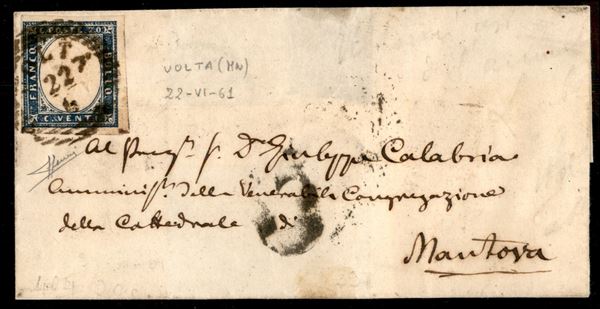 C. POSTE 20
FRANCO
BOLLO
C. VENTI
LTA
22
VOLTA (MN)
22-VI-61
Al Preg. S. Dr Giuseppe Calabria
Amminist. della Venerabile Congregazione
della Cattedrale di
Mantova
3